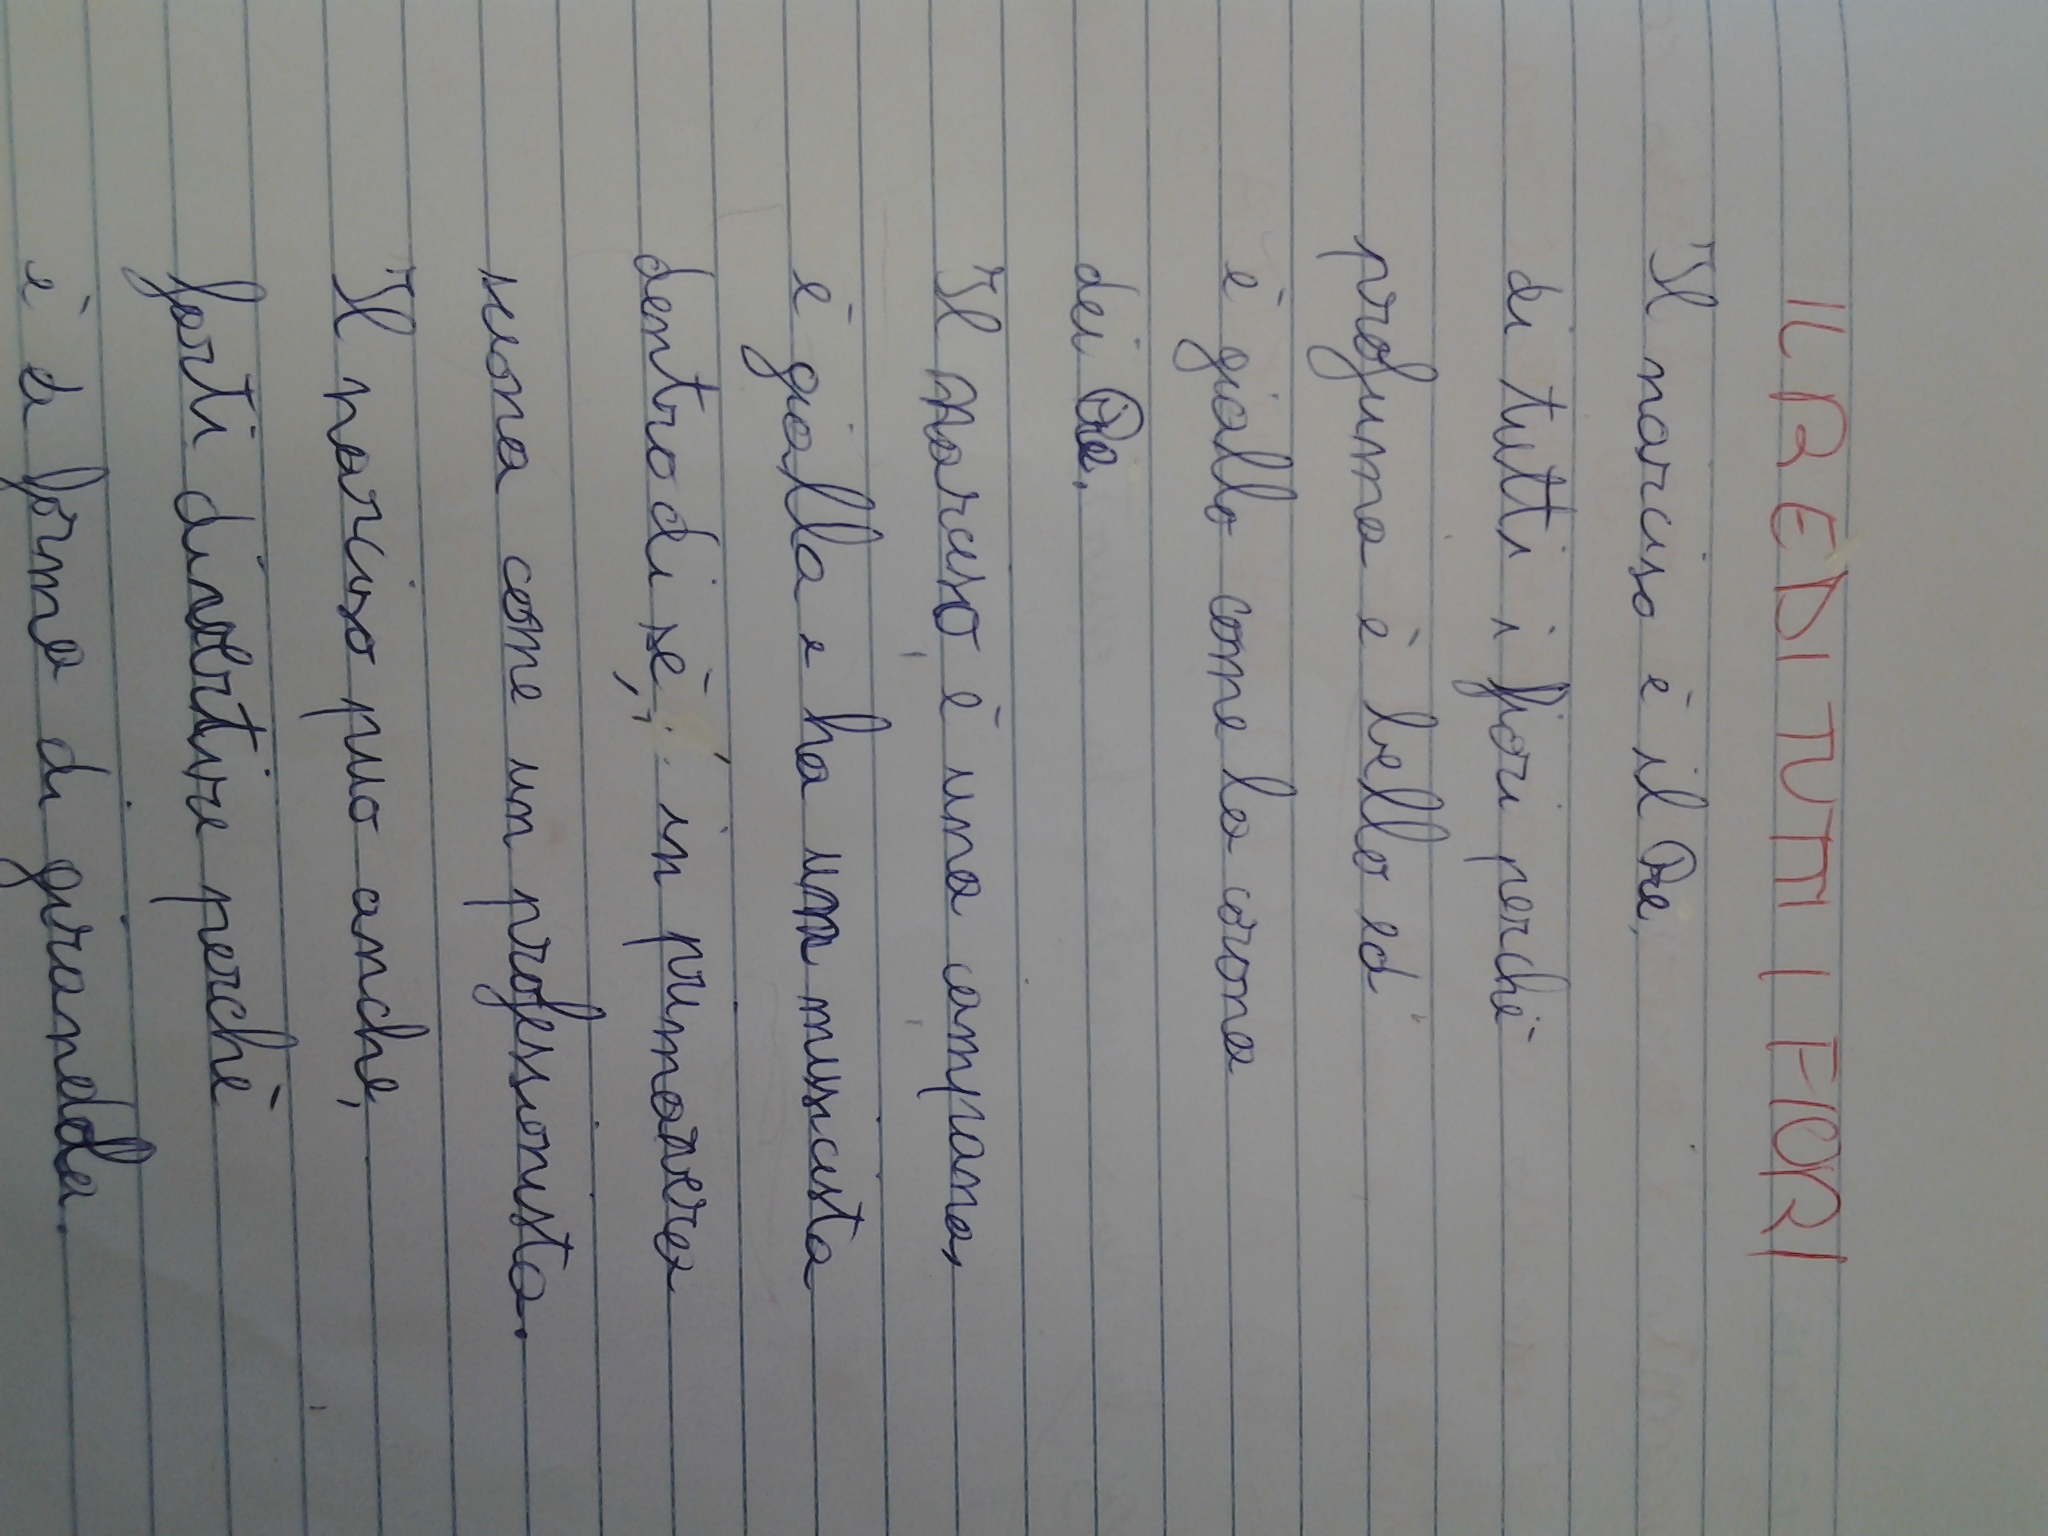 IL RE DI TUTTI I FIORI
Il narciso è il Re,
di tutti i fiori perchè
profuma è bello ed
è giallo come la corona
dei Re.
Il narciso è una campana,
è gialla e ha un musicista
dentro di sè, in primavera
suona come un professionista.
Il narciso puo anche,
farti divertire perchè
è di forma di girandola.